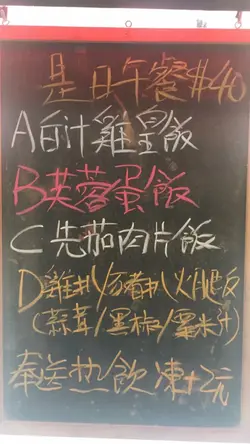 是日午餐$40
A白汁雞皇飯
B芙蓉蛋飯
C先茄肉片飯
D雞扒/豬扒/火腿飯
(蒜茸/黑椒/粟米汁)
奉送热飲凍+2元